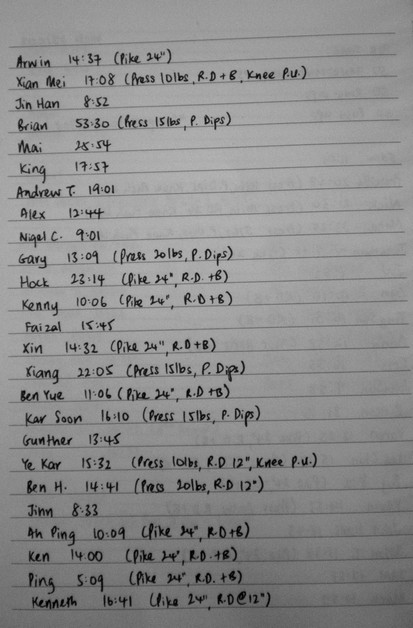 Arwin 14:37 (Pike 24")
Xian Mei 17:08 (Press 10lbs, R.D + B, Knee P.U.)
Jin Han 8:52
Brian 53:30 (Press 15lbs, P. Dips)
Mai 25:54
King 17:57
Andrew T. 19:01
Alex 12:44
Nigel C. 9:01
Gary 13:09 (Press 20lbs, P. Dips)
Hock 23:14 (Pike 24", R.D. +B)
Kenny 10:06 (Pike 24", R.D +B)
Faizal 15:45
Xin 14:32 (Pike 24", R.D+B)
Xiang 22:05 (Press 15lbs, P. Dips)
Ben Yue 11:06 (Pike 24", R.D +B)
Kar Soon 16:10 (Press 15lbs, P. Dips)
Gunther 13:45
Ye Kar 15:32 (Press 10lbs, R.D 12", Knee P.U.)
Ben H. 14:41 (Press 20lbs, R.D 12")
Jinn 8:33
Ah Ping 10:09 (Pike 24", R.D+B)
Ken 14:00 (Pike 24", R.D. +B)
Ping 5:09 (Pike 24", R.D. +B)
Kenneth 16:41 (Pike 24", R.D@12")